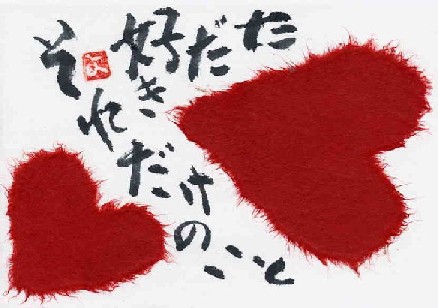 ただ好き
それだけのこと